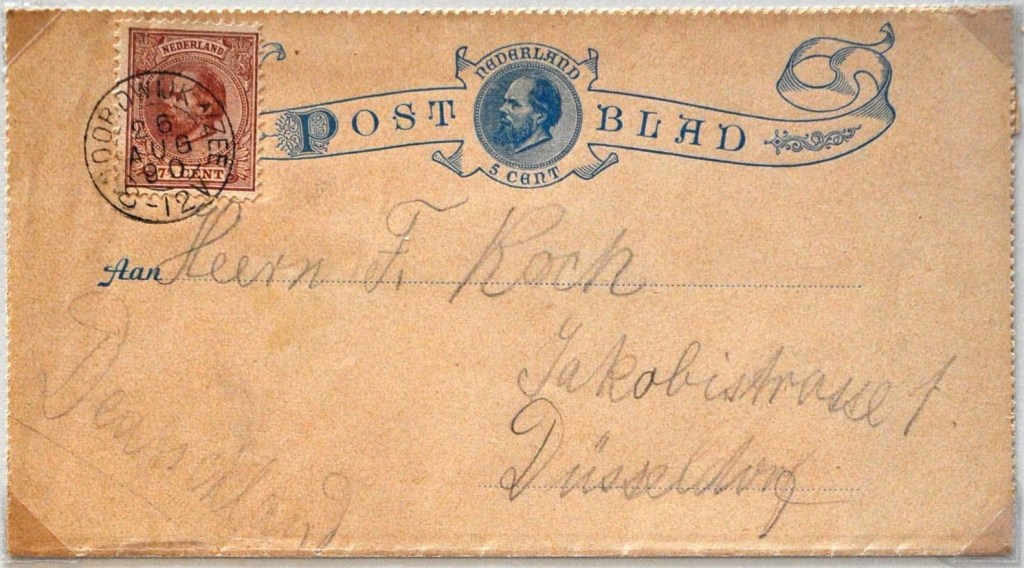 NEDERLAND
7½ CENT
NOORDWIJK A ZEE
26
AUG
90
8-12V
NEDERLAND
POST BLAD
5 CENT
Aan Herrn F. Koch
Jakobistrasse 1.
Düsseldorf
Deutschland